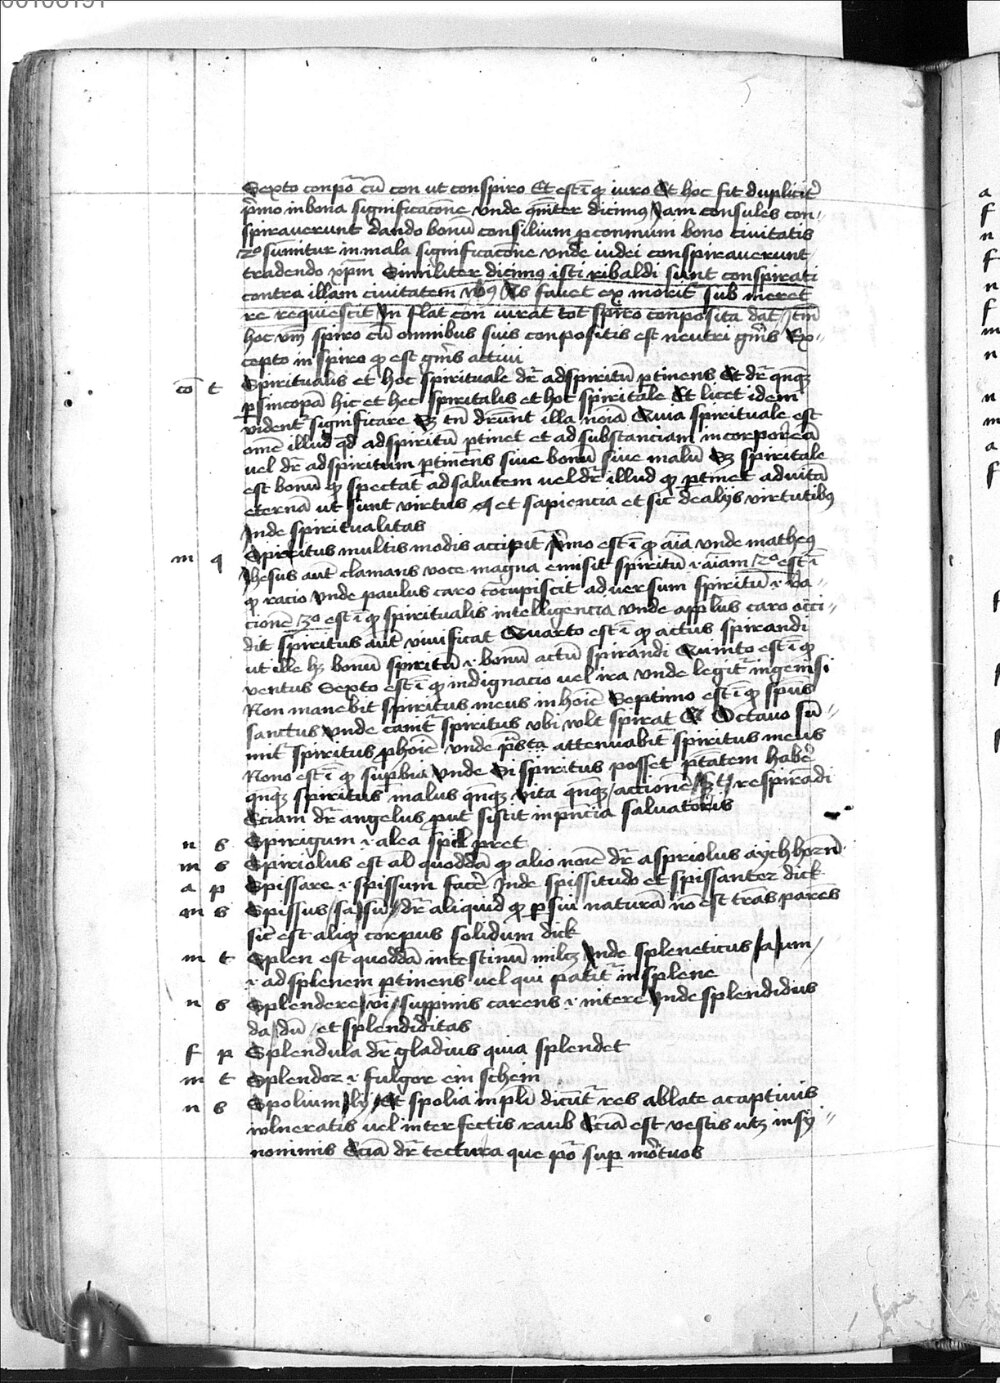 Sexto conpoͤ cū con ut conspiro Et est ī qͥ iuro Et hoc fit duplicit̕
p̕mo in bona significacōne vnde qͥnt̕er dicimꝰ Jam consules con-
spirauerunt dando bonū consilium ꝓ conmuni bono ciuitatis
2º sumitur in mala significacōne vnde iudei conspirauerunt
tradendo xp̄m Similiter dicimꝰ isti ribaldi sunt conspirati
contra illam ciuitatem vs̕ꝰ As fauet ex morit̕ sub meret
re requiescit In flat con iurat tot spiro conposita dat / tm̄
hoc vm̄ spiro cū omnibus suis conpositis est neutri gn̕is Ex-
cepto inspiro qͥ est gn̕is actiui
co t Spiritualis et hoc spirituale dr̄ ad spiritū ꝑtinens Et dr̄ qn̄qꝫ
ꝑ sincopā hic et hec spiritalis et hoc spiritale Et licet idem
vident̕ significare Sꝫ tn̄ dr̄unt illa noīa Quia spirituale est
om̄e illud qd̕ ad spiritū ꝑtinet et ad substanciam incorporeā
uel dr̄ ad spiritum ꝑtinens siue bonū siue malū Sꝫ spiritale
est bonū qͥ spectat ad salutem uel dr̄ illud qͥ ꝑtinet ad vitā
eternā ut sunt virtus et sapiencia et sic̄ de alijs virtutibꝰ
Inde spiritualitas
m q Spiritus multis modis accipit̕ P̕mo est ī qͥ aīa vnde matheꝰ
Jhesus aut̄ clamans voce magna emisit spiritū .i. aīam 2º est ī
qͥ racio vnde paulus caro cōcupiscit aduersum spiritū .i. ra-
cionē 3º est ī qͥ spiritualis intelligencia vnde appl̄us caro occi-
dit spiritus aut̄ viuificat Quarto est ī qͥ actus spirandi
ut ille hꝫ bonū spiritū .i. bonū actū spirandi Quinto est ī qͥ
ventus Sexto est ī qͥ indignacio uel ira vnde legit̕ in gen̄si
Non manebit spiritus meus in hoīe Septimo est ī qͥ sp̄us
sanctus vnde canit̕ spiritus vbi wlt spirat Et Octauo su-
mit̕ spiritus ꝓ hoīe vnde psͣta attenuabit̕ spiritus meus
Nono est ī qͥ supbia vnde Si spiritus posset ptātem habe̕
qn̄qꝫ spiritus malus qn̄qꝫ vita qn̄qꝫ accionē respirandi
Eciam dr̄ angelus ꝓut sistit in pn̄cia saluatoris
n s Spirigum .i. alea spil pret
m s Spiriolus est al quoddā qͥ alio noīe dr̄ aspriolus aychhorn
a p Spissare .i. spissum face̕ Inde spissitudo et spissanter dick
m s Spissus / sa / sū / dr̄ aliquid qͥ ꝑ sui naturā nō est trāsparēs
sic̄ est aliqͥ corpus solidum dick
m t Splen est quoddā intestinū milcz Inde spleneticus / a / um /
.i. ad splenem ꝑtinens uel qui patit̕ in splene
n s Splendere / vi / suppinis carens .i. nitere Inde splendidus
da / dū / et splendiditas
f p Splendula dr̄ gladius quia splendet
m t Splendor .i. fulgor ein schein
n s Spolium / lij / Et spolia in pl̄i dicūt̕ res ablate a captiuis
wlneratis uel interfectis raub Eciā est vestis utꝫ in sy-
nonimis Eciā dr̄ tectura que po͡ sup mōrtuos